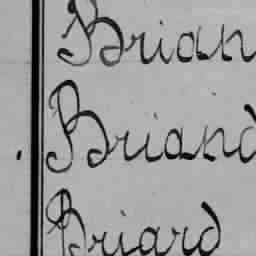 Brian
Briand
Briard